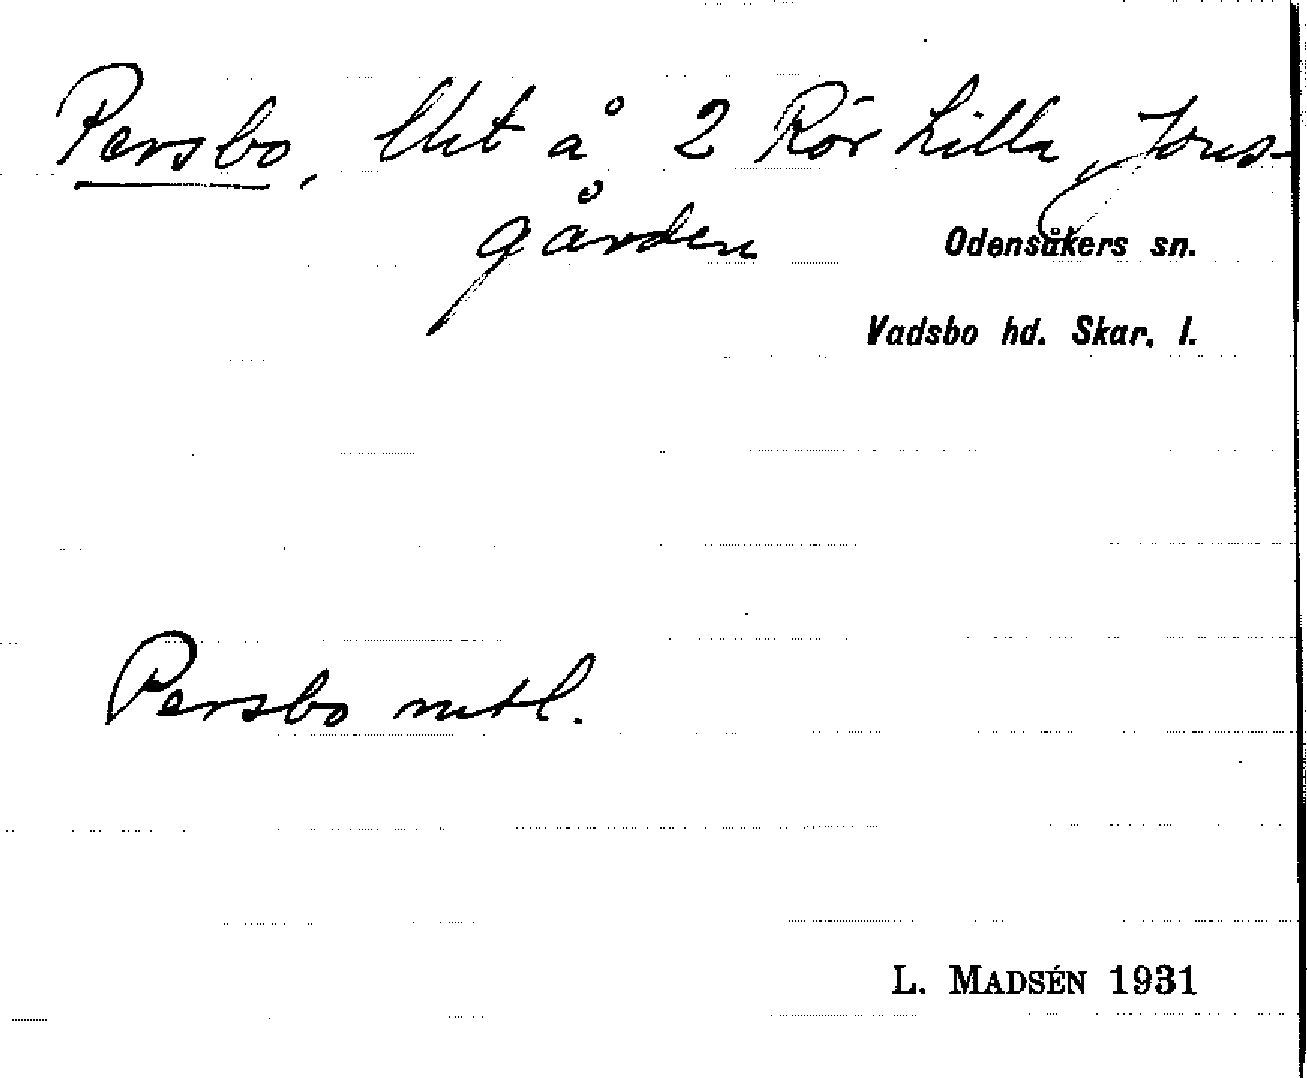 Persbo, lht å 2 Rör Lilla, Jons-
gården
Odensåkers sn.
Vadsbo hd. Skar. l.
Persbo mtl.
L. MADSÉN 1931